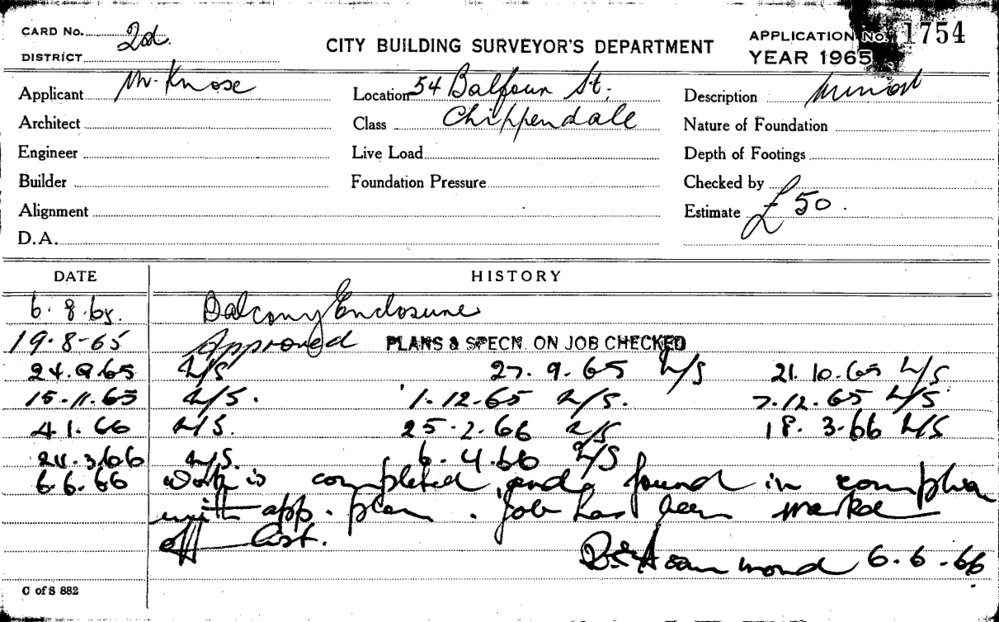 CARD No. 2d. CITY BUILDING SURVEYOR'S DEPARTMENT APPLICATION No. 1754
DISTRICT YEAR 1965
Applicant Mr. Knose Location 54 Balfour St. Description Minor
Architect Class Chippendale Nature of Foundation
Engineer Live Load Depth of Footings
Builder Foundation Pressure Checked by
Alignment Estimate £50.
D.A.
DATE HISTORY
6.8.65. Balcony Enclosure
19-8-65 Approved PLANS & SPECN. ON JOB CHECKED
24.9.65 N/S 27.9.65 N/S 21.10.65 N/S
15.11.65 N/S. 1.12.65 N/S. 7.12.65 N/S
4.1.66 N/S. 25.2.66 N/S 18.3.66 N/S
24.3.66 N/S. 6.4.66 N/S
6.6.66 work is completed and found in complia
with app. plan. Job has been marked
off list.
6.6.66
C of S 882